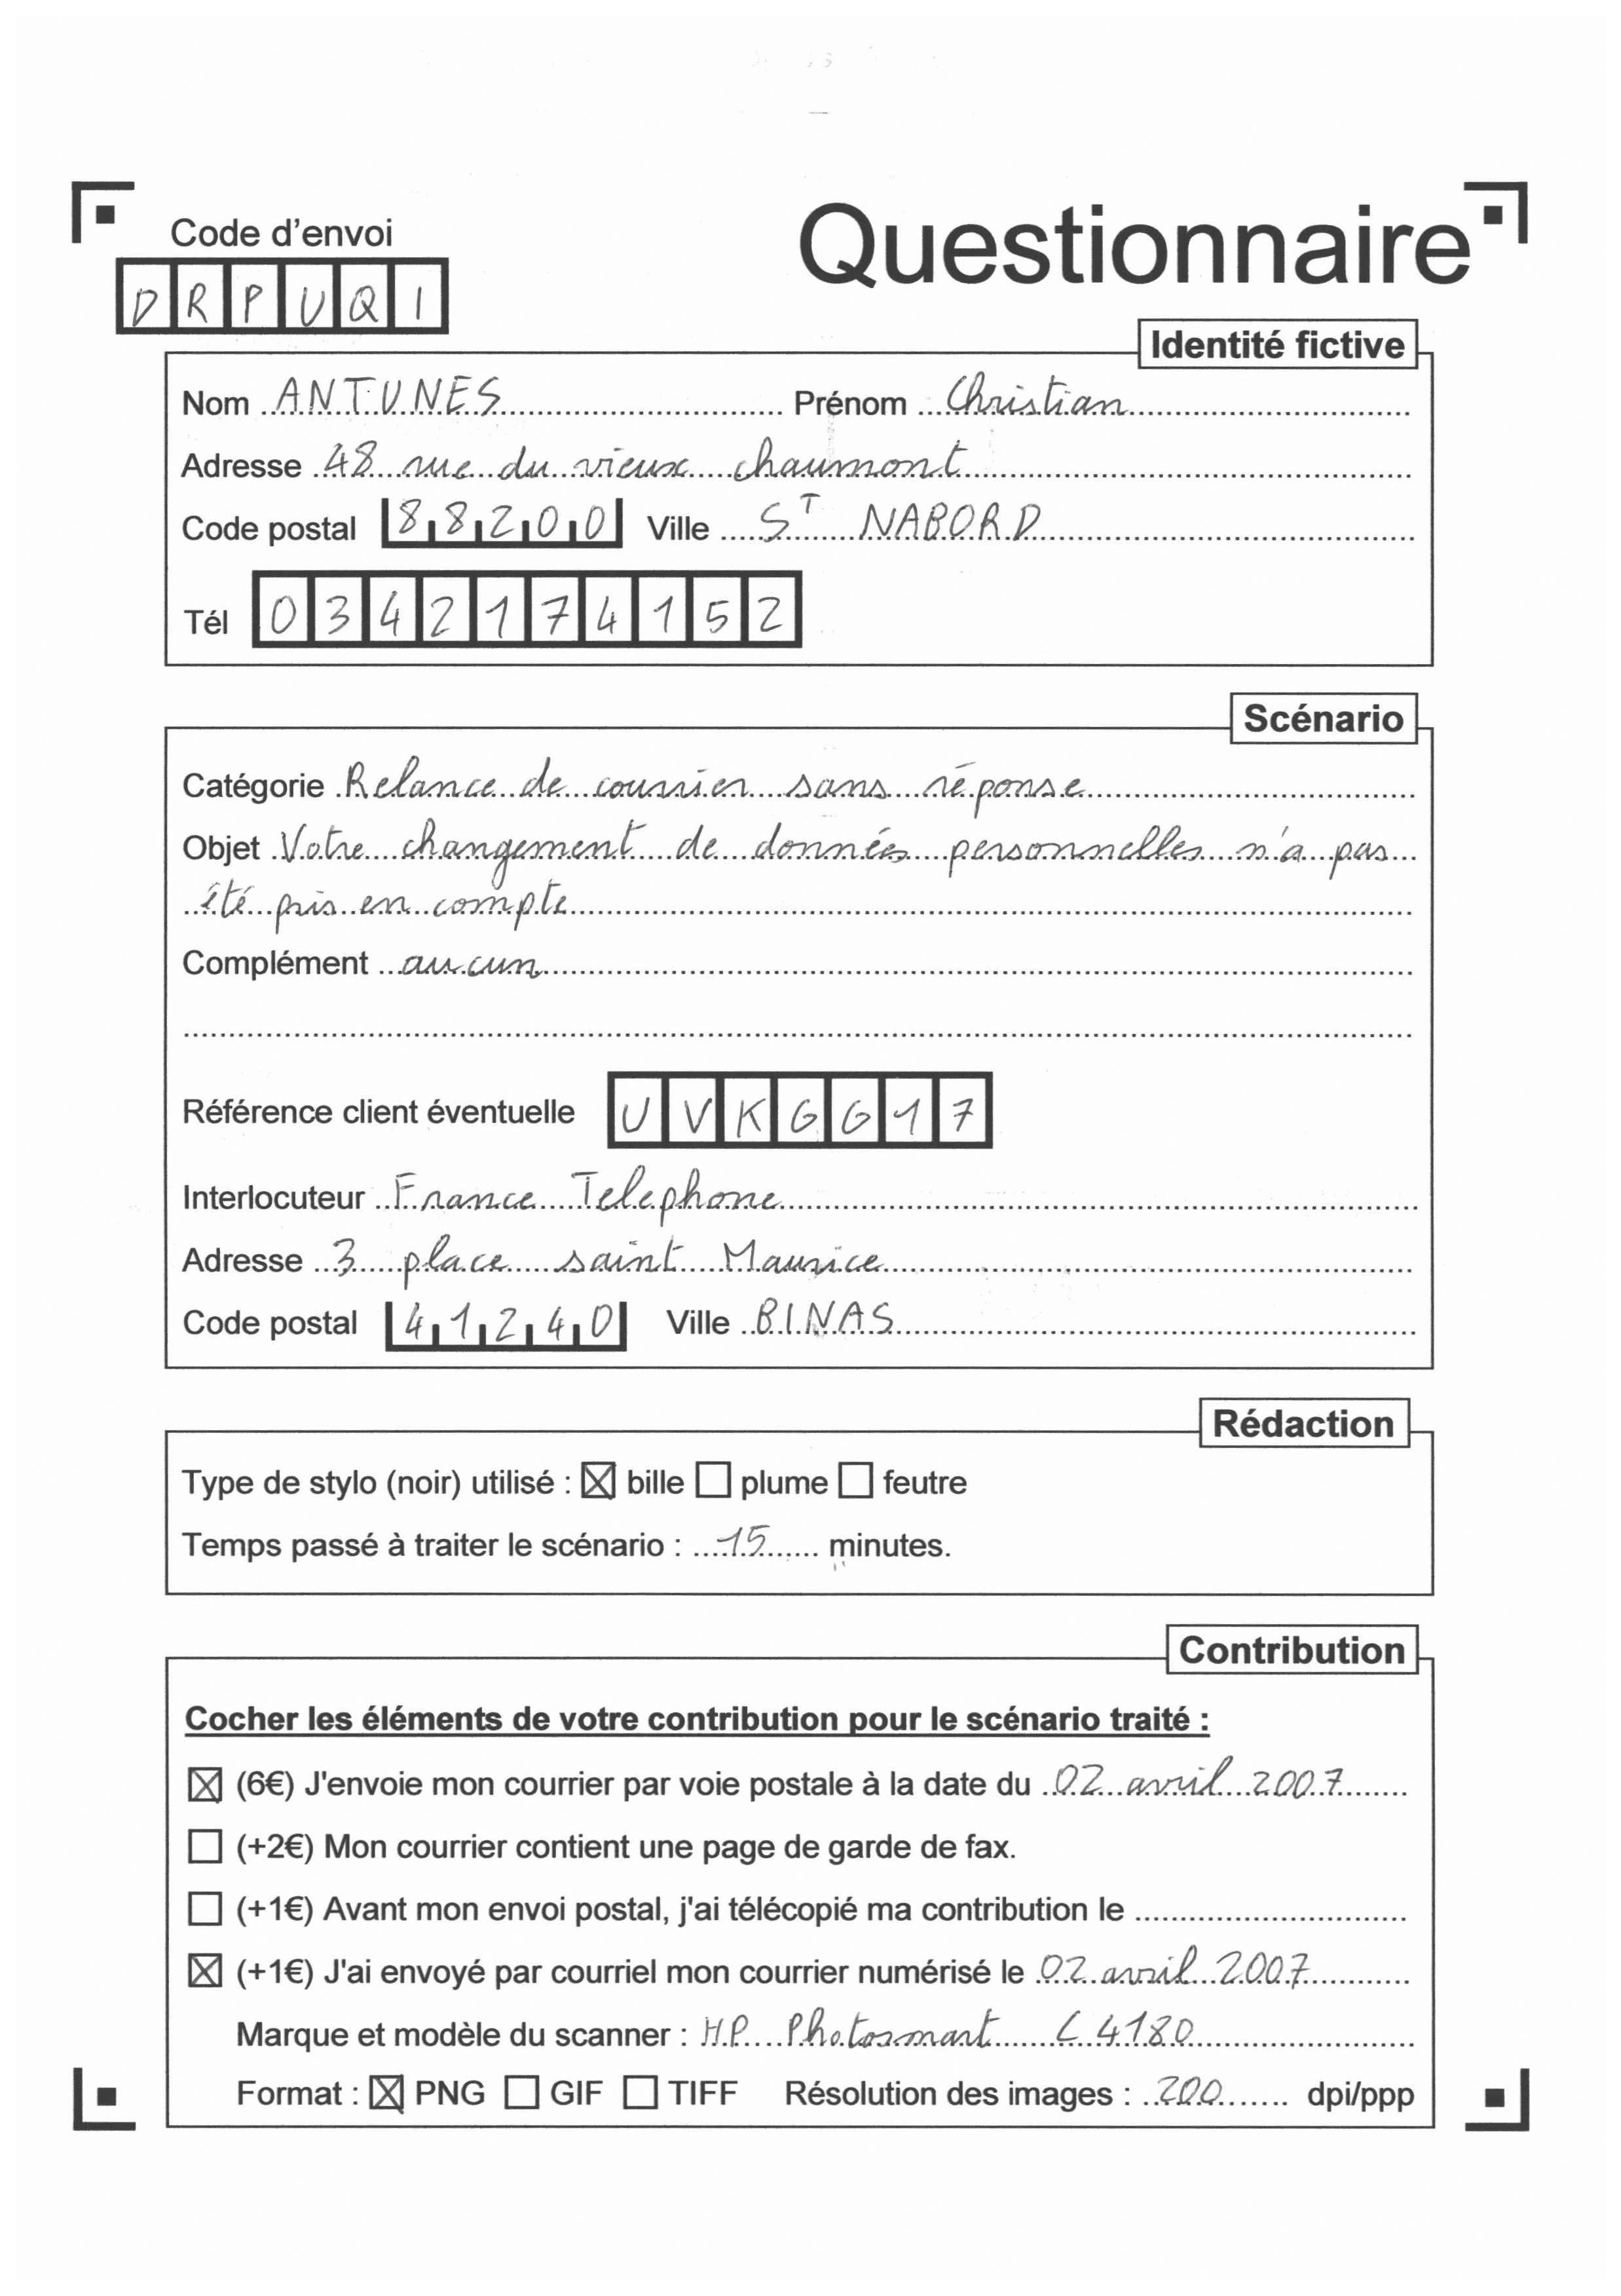 Code d'envoi
Questionnaire
DRPUQI
Identité fictive
Nom ANTUNES Prénom Christian
Adresse 48 rue du vieux chaumont
Code postal 88200 Ville ST NABORD
Tél 0342174152
Scénario
Catégorie Relance de courrier sans réponse
Objet Votre changement de données personnelles n'a pas
été pris en compte
Complément aucun
Référence client éventuelle UVKGG17
Interlocuteur France Telephone
Adresse 3 place saint Maurice
Code postal 41240 Ville BINAS
Rédaction
Type de stylo (noir) utilisé : ☒ bille ☐ plume ☐ feutre
Temps passé à traiter le scénario : 15 minutes.
Contribution
Cocher les éléments de votre contribution pour le scénario traité :
☒ (6€) J'envoie mon courrier par voie postale à la date du 02 avril 2007
☐ (+2€) Mon courrier contient une page de garde de fax.
☐ (+1€) Avant mon envoi postal, j'ai télécopié ma contribution le
☒ (+1€) J'ai envoyé par courriel mon courrier numérisé le 02 avril 2007
Marque et modèle du scanner : HP Photosmart C4180
Format : ☒ PNG ☐ GIF ☐ TIFF Résolution des images : 200 dpi/ppp